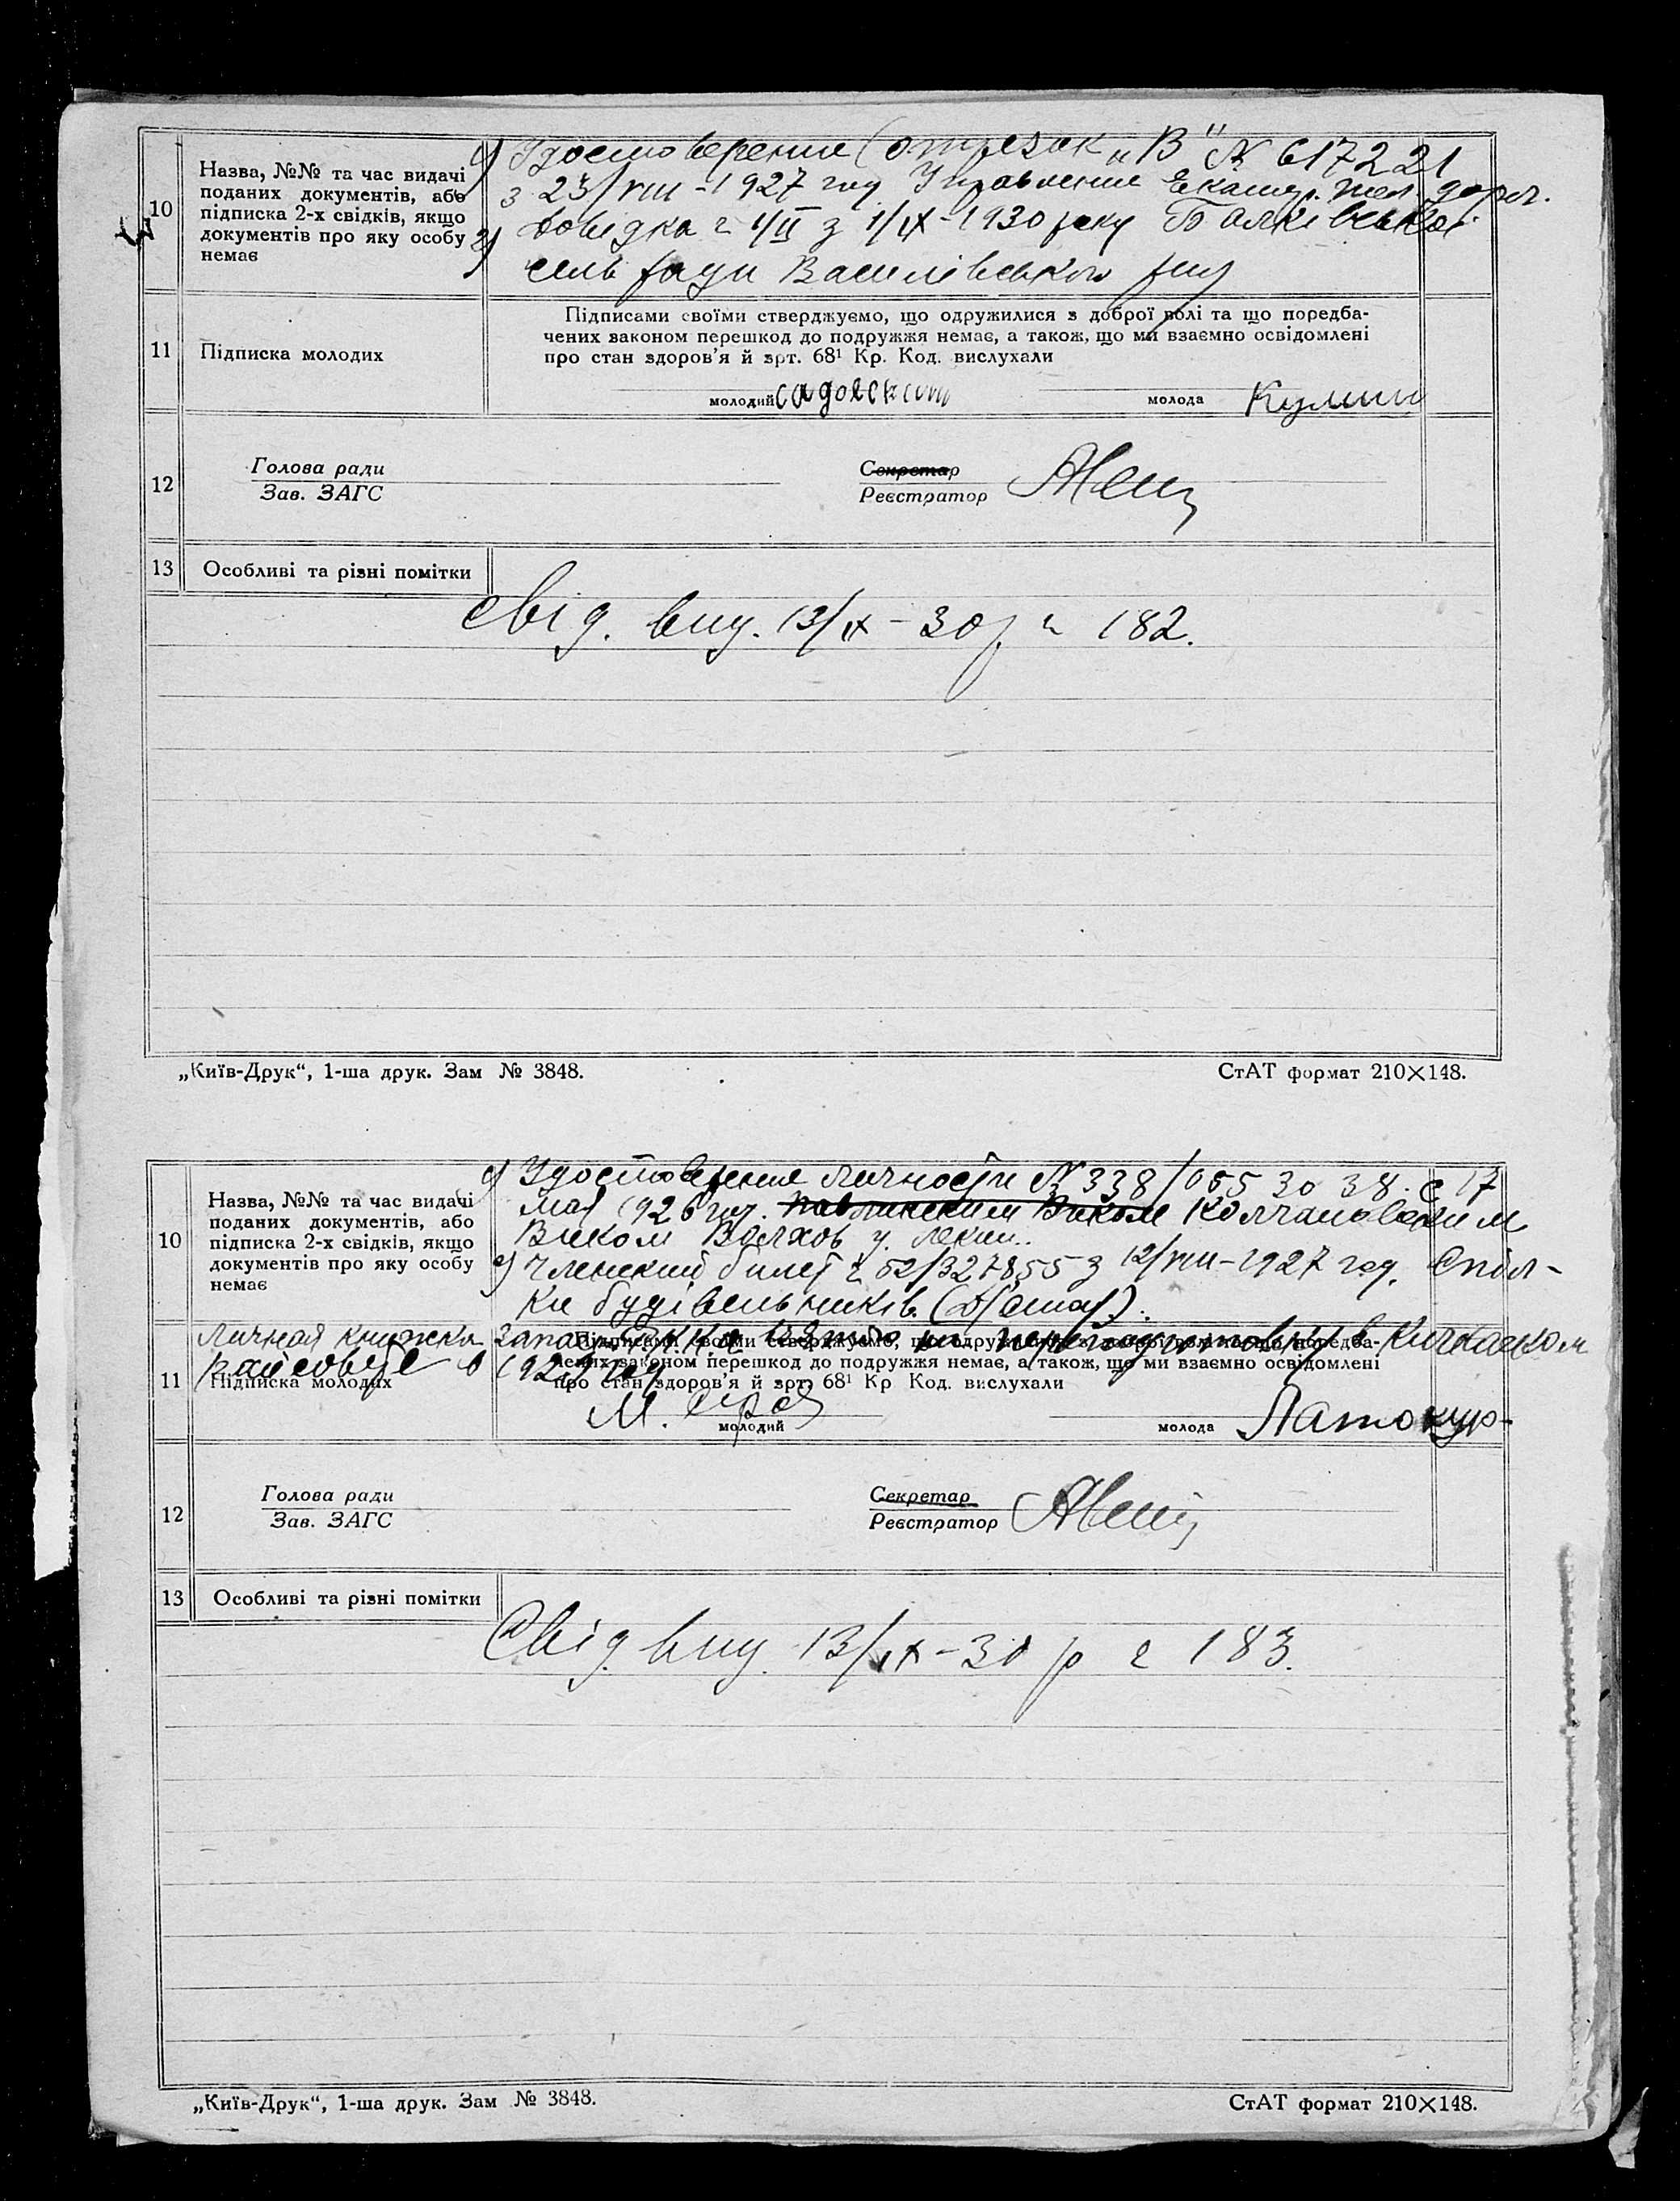 10
Назва, №№ та час видачі
поданих документів, або
підписка 2-х свідків, якщо
документів про яку особу
немає
1) Удостоверение (отрезок „В" № 617221
з 23/VIII-1927 год Управление Екатер. жел. дорог.
2) Довідка № 1/II з 1/IX-1930 року Балківської
сель ради Василівського
11
Підписка молодих
Підписами своїми стверджуємо, що одружилися з доброї волі та що поредба-
чених законом перешкод до подружжя немає, а також, що ми взаємно освідомлені
про стан здоров'я й зрт. 68¹ Кр. Код. вислухали
молодий
молода Кулиш
12
Голова ради
Зав. ЗАГС
Секретар
Реєстратор
13
Особливі та різні помітки
Свід. вид. 13/IX-30 р № 182.
„Київ-Друк“, 1-ша друк. Зам № 3848.
СтАТ формат 210×148.
10
Назва, №№ та час видачі
поданих документів, або
підписка 2-х свідків, якщо
документів про яку особу
немає
1) Удостоверение личности № 338/ 30 38. с 17
мая 1926 год. Колчановским
Виком Волхов у. Ленин.
2) Членский билет № 52/327855 з 12/VIII-1927 год. Спіл-
ки будівельників
Личная книжка запас.
в 1929 год
11
Підписка молодих
Підписами своїми стверджуємо, що одружилися з доброї волі та що поредба-
чених законом перешкод до подружжя немає, а також, що ми взаємно освідомлені
про стан здоров'я й зрт. 68¹ Кр Код. вислухали
М.
молодий
молода
12
Голова ради
Зав. ЗАГС
Секретар
Реєстратор
13
Особливі та різні помітки
Свід. вид. 13/IX-30 р № 183.
„Київ-Друк“, 1-ша друк. Зам № 3848.
СтАТ формат 210×148.